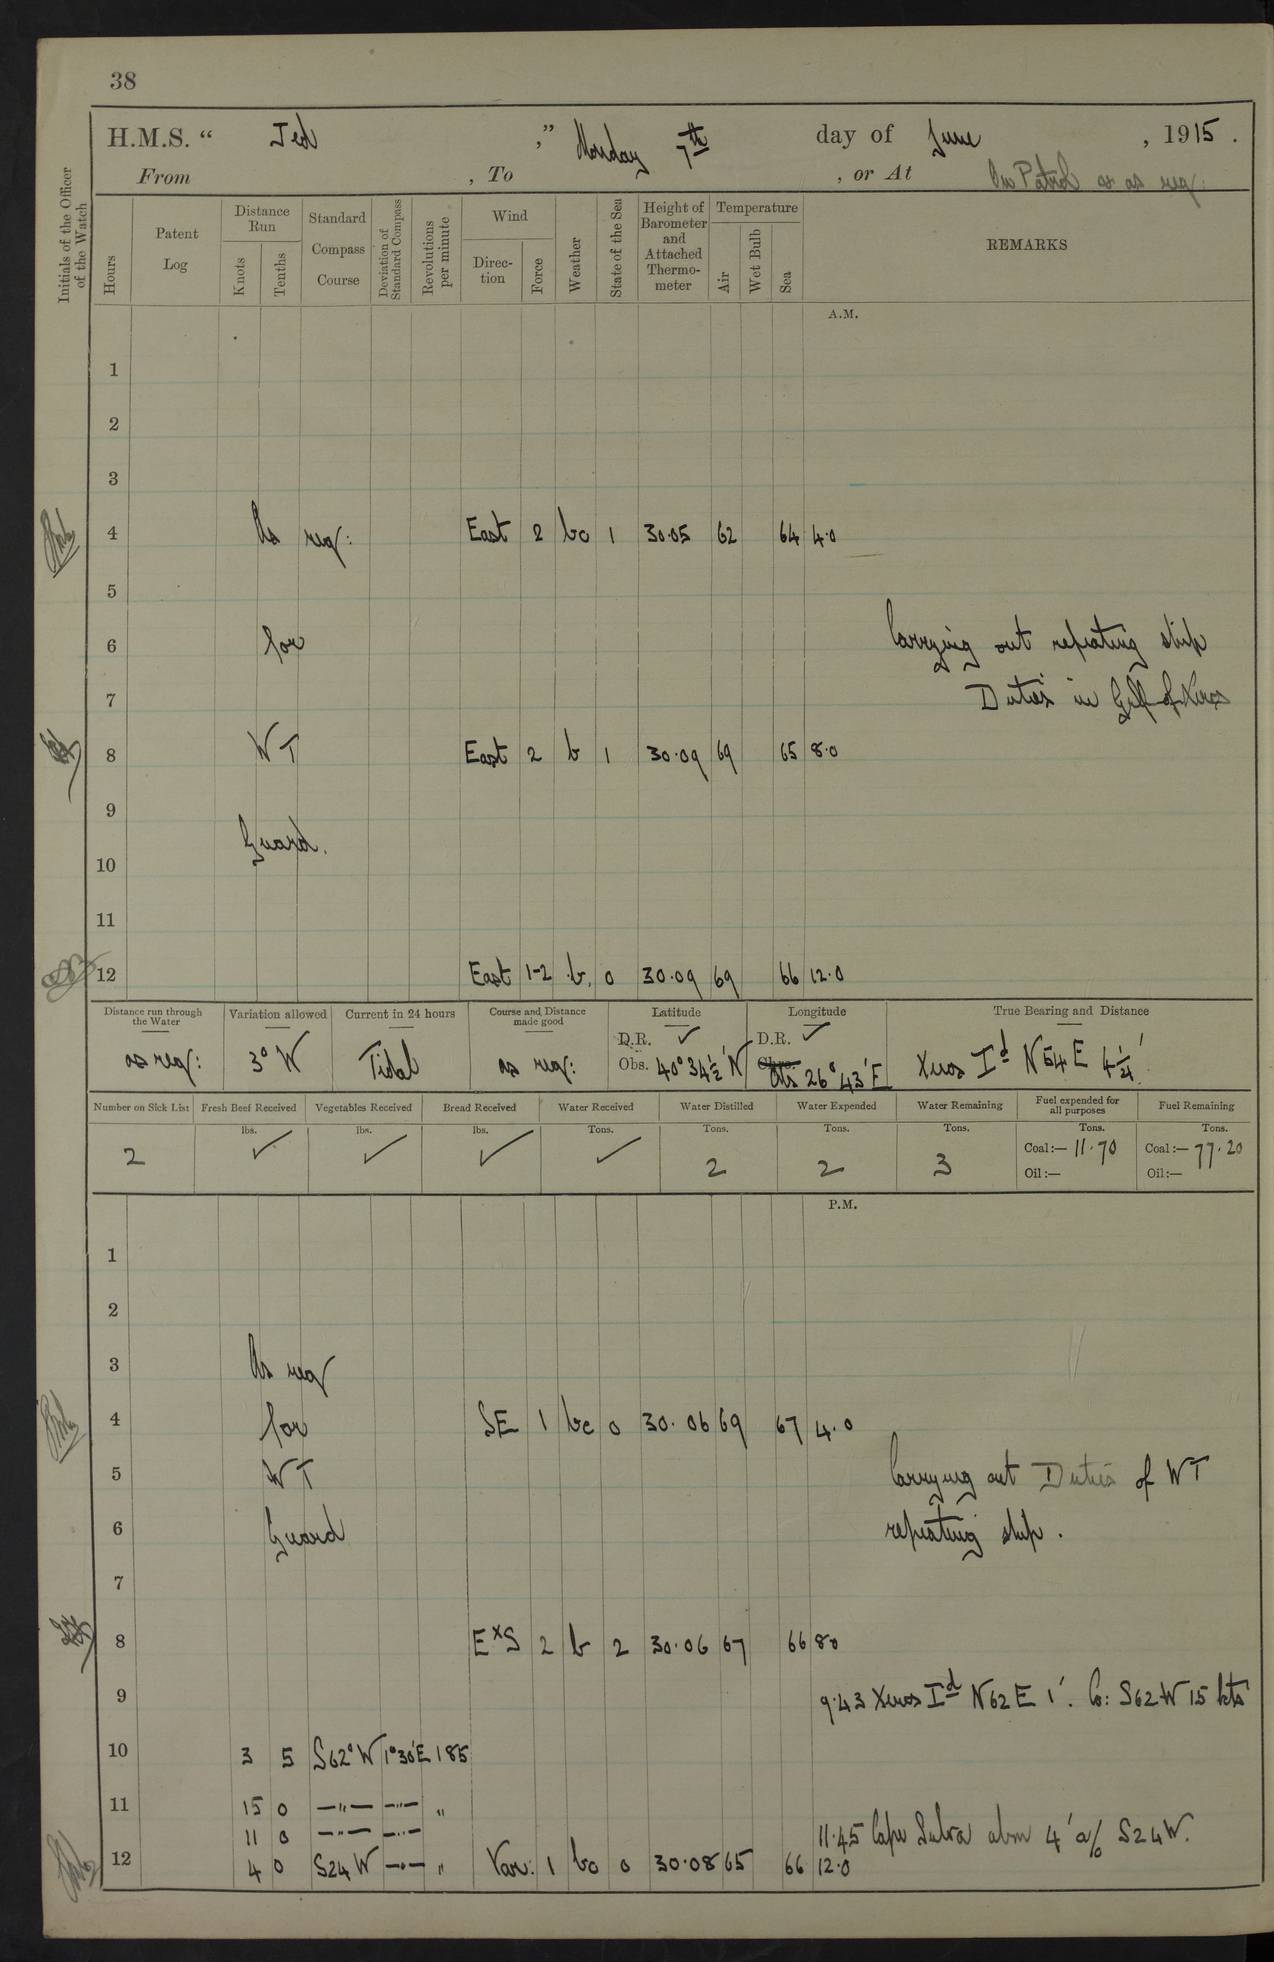 38
H.M.S. “ Jed ” Monday 7th day of June , 1915 .
From , To , or At On Patrol or as req:
Initials of the Officer of the Watch
Hours
Patent Log
Distance Run
Knots
Tenths
Standard Compass Course
Deviation of Standard Compass
Revolutions per minute
Wind
Direction
Force
Weather
State of the Sea
Height of Barometer and Attached Thermometer
Temperature
Air
Wet Bulb
Sea
REMARKS
A.M.
1
2
3
4 As req: East 2 bc 1 30.05 62 64 4.0
5
6 for Carrying out repeating ship
7 Duties in Gulf of Xeros
8 WT East 2 b 1 30.09 69 65 8.0
9
Guard.
10
11
12 East 1-2 b. 0 30.09 69 66 12.0
Distance run through the Water
as req:
Variation allowed
3° W
Current in 24 hours
Tidal
Course and Distance made good
as req:
Latitude
D.R. ✓
Obs. 40° 34½' N
Longitude
D.R. ✓
Obs 26° 43' E
True Bearing and Distance
Xeros Id N54E 4¼'
Number on Sick List
2
Fresh Beef Received
lbs. ✓
Vegetables Received
lbs. ✓
Bread Received
lbs. ✓
Water Received
Tons. ✓
Water Distilled
Tons.
2
Water Expended
Tons.
2
Water Remaining
Tons.
3
Fuel expended for all purposes
Tons.
Coal:— 11.70
Oil:—
Fuel Remaining
Tons.
Coal:— 77.20
Oil:—
P.M.
1
2
3 As req
4 for SE 1 bc 0 30.06 69 67 4.0
5 WT Carrying out Duties of WT
6 Guard repeating ship.
7
8 ExS 2 b 2 30.06 67 66 8.0
9 9.43 Xeros Id N62E 1'. Co: S62W 15 kts
10 3 5 S62°W 1°30'E 185
11 15 0 —"— —"— "
11 0 —"— —"— 11.45 Cape Suvla abm 4' a/c S24W.
12 4 0 S24W —"— " Var: 1 bc 0 30.08 65 66 12.0